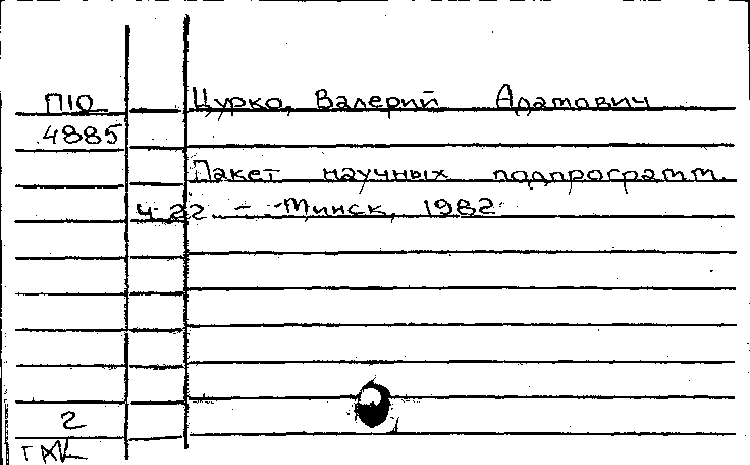 П10 Цурко, Валерий Адамович
4885
Пакет научных подпрограмм.
Ч. 22. - Минск, 1982.
2